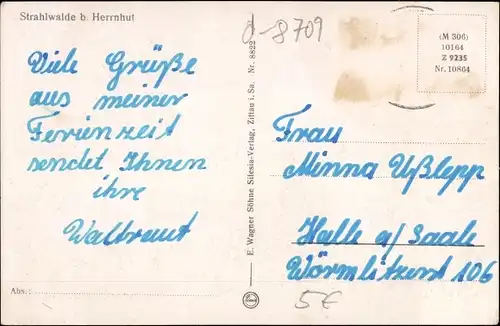 Strahlwalde b. Herrnhut
d-8709
(M 306)
10164
Z 9235
Nr. 10864
Viele Grüße
aus meiner
Ferienzeit
sendet Ihnen
ihre
Waltraut
E. Wagner Söhne Silesia-Verlag, Zittau i. Sa. Nr. 8822
Frau
Minna Ußlepp
Halle a/Saale
Wörmlitzerst 106
Abs.:
5€